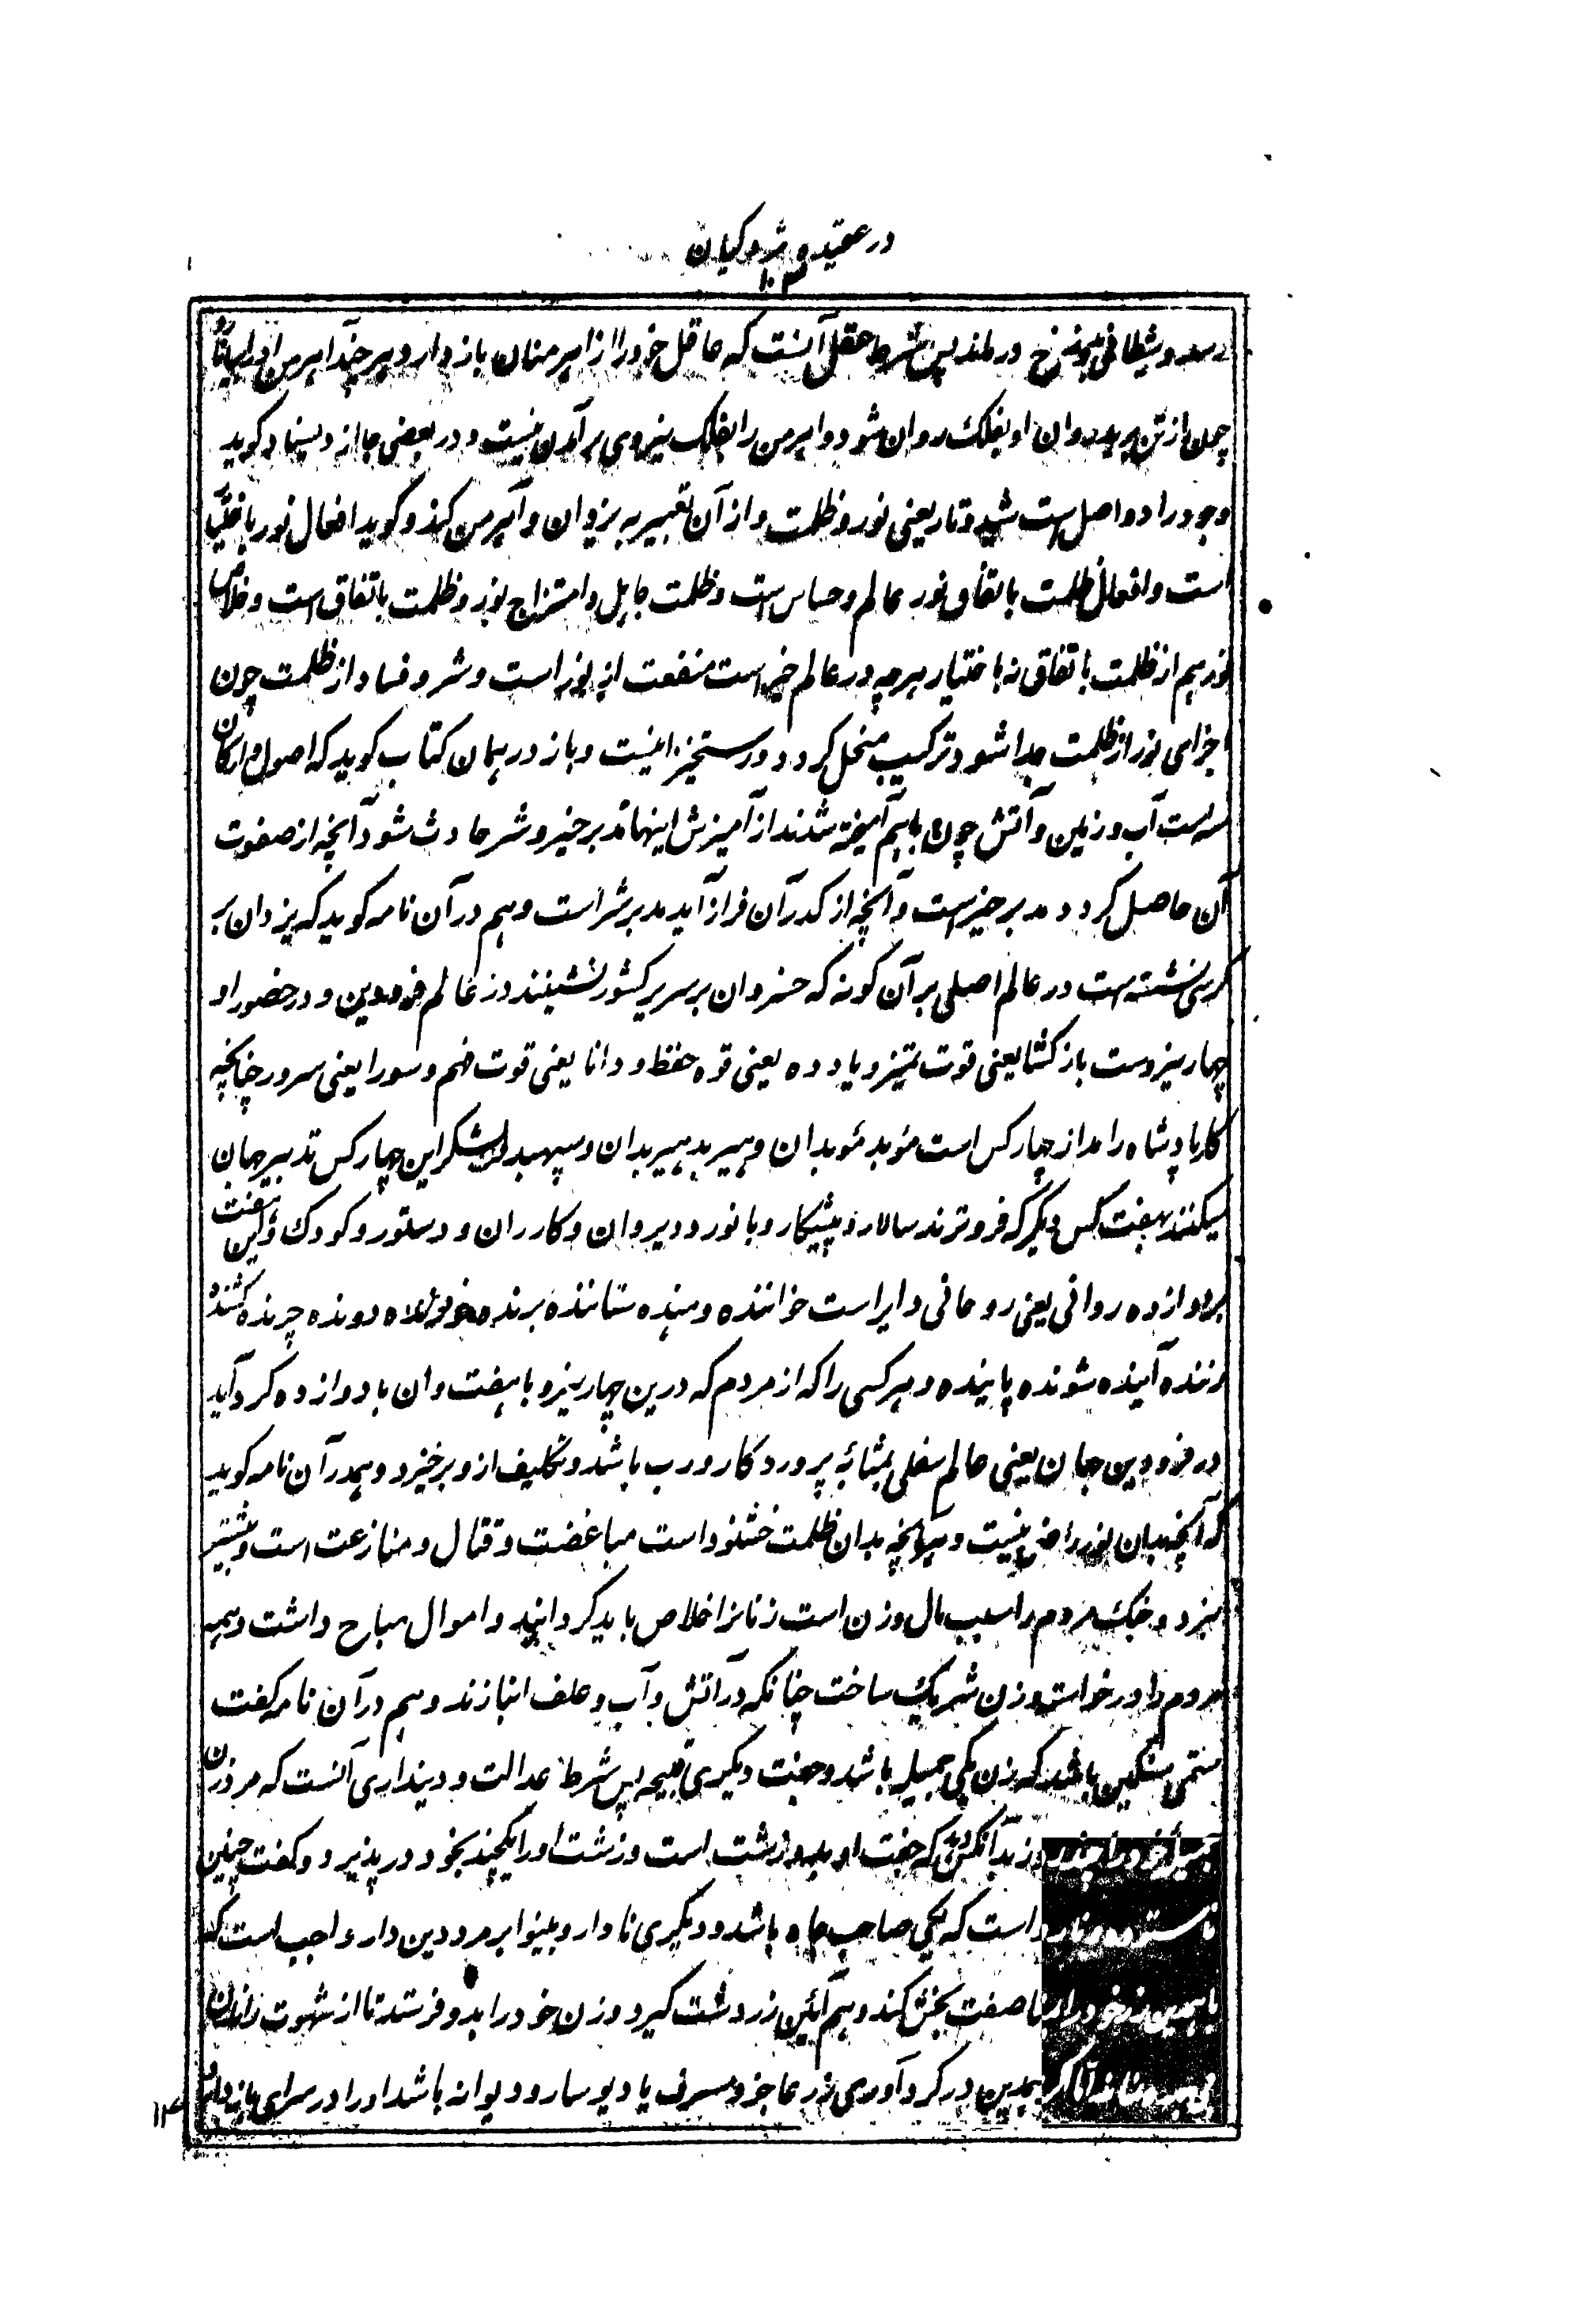 در عقیده مزدکیان
۱۰۳
رسد و شیطان در دوزخ درماند پس شرط عقل آنست که عاقل خود را از اهرمنان باز دارد و هرچند اهرمن او را
چون از تن برید روان او بفلک روان شود و اهرمن را بفلک نیروی برآمدن نیست و در بعضی جا از دیسناد گوید
وجود را دو اصل است شید و تار یعنی نور و ظلمت و از آن تعبیر به یزدان و آهرمن کند و گوید افعال نور باختیار
است و افعال ظلمت باتفاق نور عالم و حساس است و ظلمت جاهل و امتزاج نور و ظلمت باتفاق است و خلاص
نور هم از ظلمت باتفاق نه باختیار هرچه در عالم خیر است منفعت از نور است و شر و فساد از ظلمت چون
اجزای نور از ظلمت جدا شود ترکیب منحل گردد و رستخیز اینست و باز در همان کتاب گوید که اصول و ارکان
سه است آب و زمین و آتش چون باهم آمیخته شدند از آمیزش اینها مدبر خیر و شر حادث شود آنچه از صفوت
آن حاصل گردد مدبر خیر است و آنچه از کدر آن فراز آید مدبر شر است و هم در آن نامه گوید که یزدان بر
کرسی نشسته است در عالم اصلی بر آن گونه که خسروان بر سریر کشور نشینند در عالم فرودین و در حضور او
چهار نیروست باز کشا یعنی قوت تمیز و یادده یعنی قوه حفظ و دانا یعنی قوت فهم و سورا یعنی سرور چنانچه
کار پادشاه را مدار چهار کس است موبد موبدان و هیربد هیربدان و سپهبد و رامشگر این چهار کس تدبیر جهان
میکنند بهفت کس دیگر که فروترند سالار و پیشکار و بانور و دیروان و کارران و دستور و کودک و این هفت
بر دوازده روانی یعنی روحانی دایر است خواننده دهنده ستاننده برنده خورنده دونده چرنده کشنده
زننده آینده شونده پاینده و هر کسی را که از مردم که درین چهار نیرو با هفت وان با دوازده گرد آید
در فرودین جهان یعنی عالم سفلی بمثابه پروردگار و رب باشد و تکلیف از و برخیزد و هم در آن نامه گوید
که آنچه بدان نور راضی نیست و هرآنچه بدان ظلمت خشنود است مباغضت و قتال و منازعت است و بیشتر
نبرد و جنک مردم را سبب مال و زن است زنانرا خلاص باید گردانید و اموال مباح داشت و همه
مردم را در خواسته و زن شریک ساخت چنانکه در آتش و آب و علف انبازند و هم در آن نامه گفت
ستمی سنگین باشد که زن یکی جمیله باشد و جفت دیگری قبیحه پس شرط عدالت و دینداری آنست که مرد زن
زد بدانکس دهد که جفت او بد و زشت است و زشت او را یکچند بخود درپذیرد و گفت چنین
است که یکی صاحب جاه باشد و دیگری نادار و بینوا بر مرد دین دار واجب است که
مناصفت بخش کند و هم آئین زردشت گیرد و زن خود را بدو فرستد تا از شهوت
بمدین در گردآوری زر عاجز و مسرف یا دیوسار و دیوانه باشد او را در سرای
۱۴